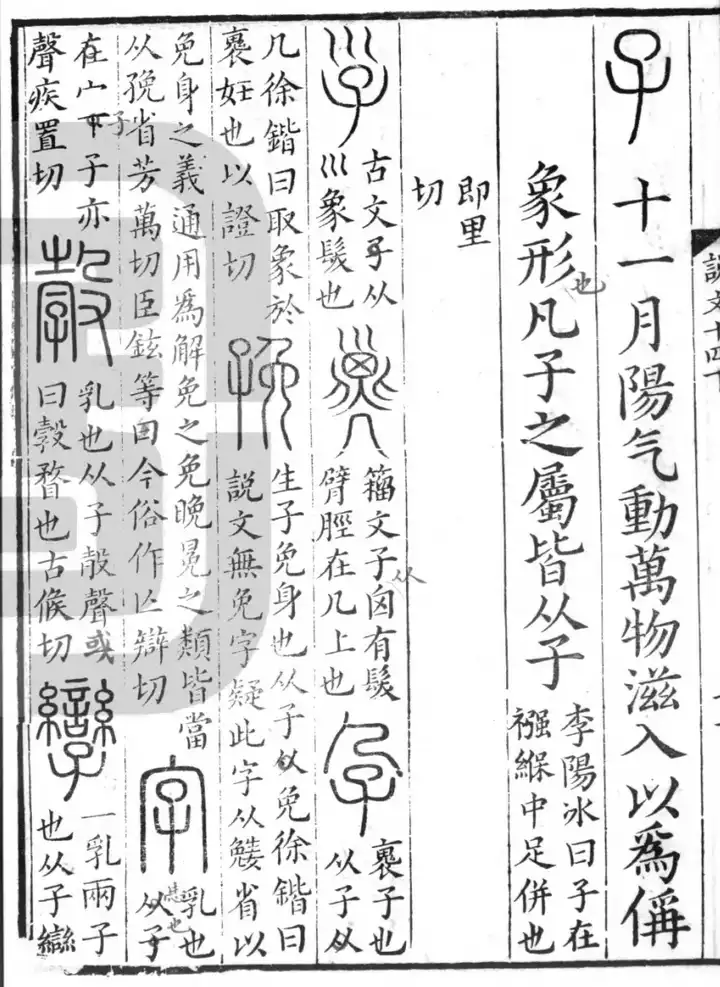 說文十四下
子 十一月陽气動萬物滋入以爲偁
象形凡子之屬皆从子
也
李陽冰曰子在
襁緥中足併也
即里
切
𢀇
古文子从
巛象髮也
𢀈
籒文子囟有髮
从
臂脛在几上也
孕
裹子也
从子从
几徐鍇曰取象於
裹妊也以證切
㝃
生子免身也从子从免徐鍇曰
說文無免字疑此字从省以
免身之義通用爲解免之免晚冕之類皆當
从㝃省芳萬切臣鉉等曰今俗作亡辯切
字
乳也
从子
在宀下子亦
子
聲疾置切
㝅
乳也从子㱿聲或
曰㝅瞀也古候切
孿
一乳兩子
也从子䜌